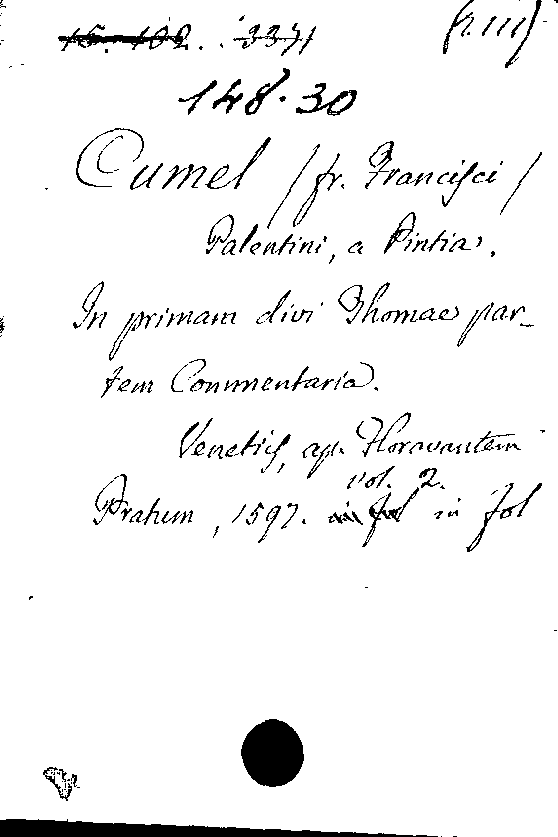 15. 102. 3371
(R.III)
148.30
Cumel /fr. Francisci/
Palentini, a Pintia.
In primam divi Thomae par-
tem Commentaria.
Venetiis, ap. Floravantem
vol. 2.
Pratum, 1597. in fol in fol